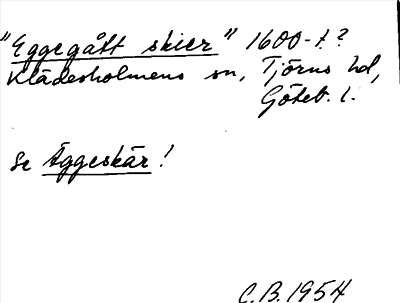 "Eggegått skier" 1600-t?
Klädesholmens sn, Tjörns hd,
Göteb. l.
Se Äggeskär!
C.B. 1954